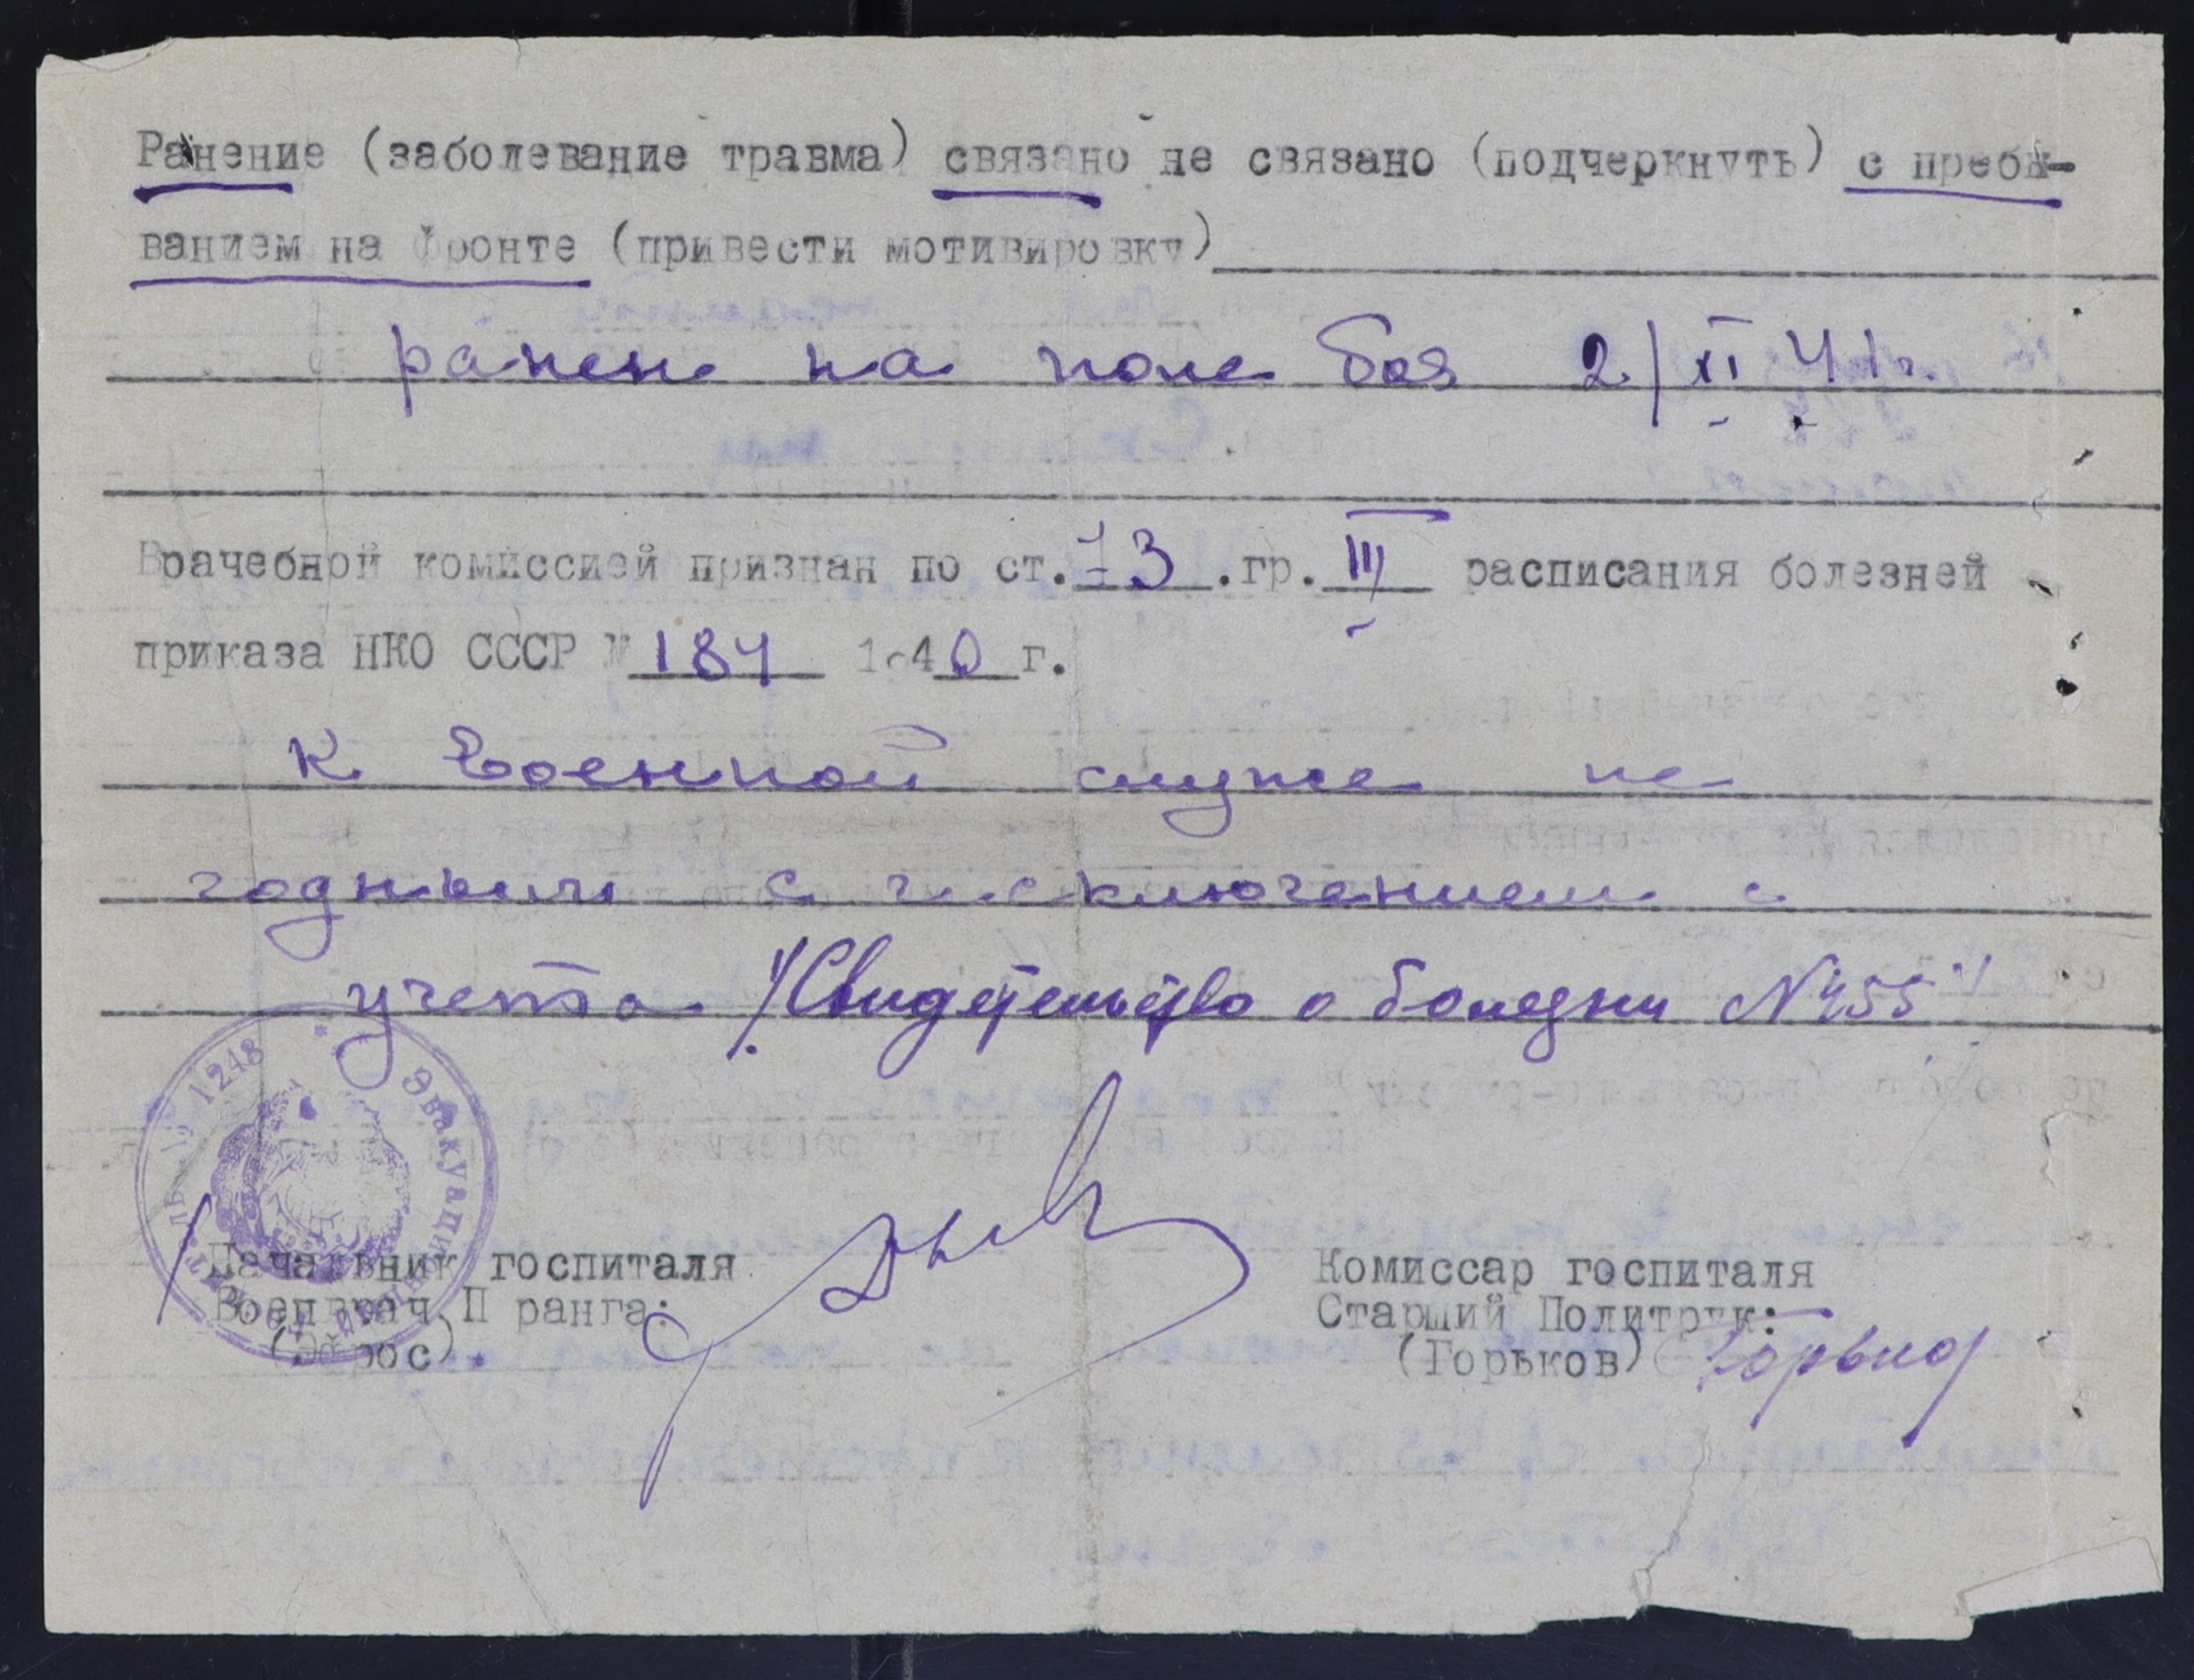 Ранение (заболевание травма) связано не связано (подчеркнуть) с пребы-
ванием на фронте (привести мотивировку)
ранен на поле боя 2/XI 41г.
Врачебной комиссией признан по ст. 13 .гр. III расписания болезней
приказа НКО СССР № 184 1940 г.
к военной службе не
годным с исключением с
учета. "Свидетельство о болезни № 455"
Эвакуационный госпиталь № 1248
Начальник госпиталя
Военврач II ранга:
(Эфрос).
Комиссар госпиталя
Старший Политрук:
(Горьков)